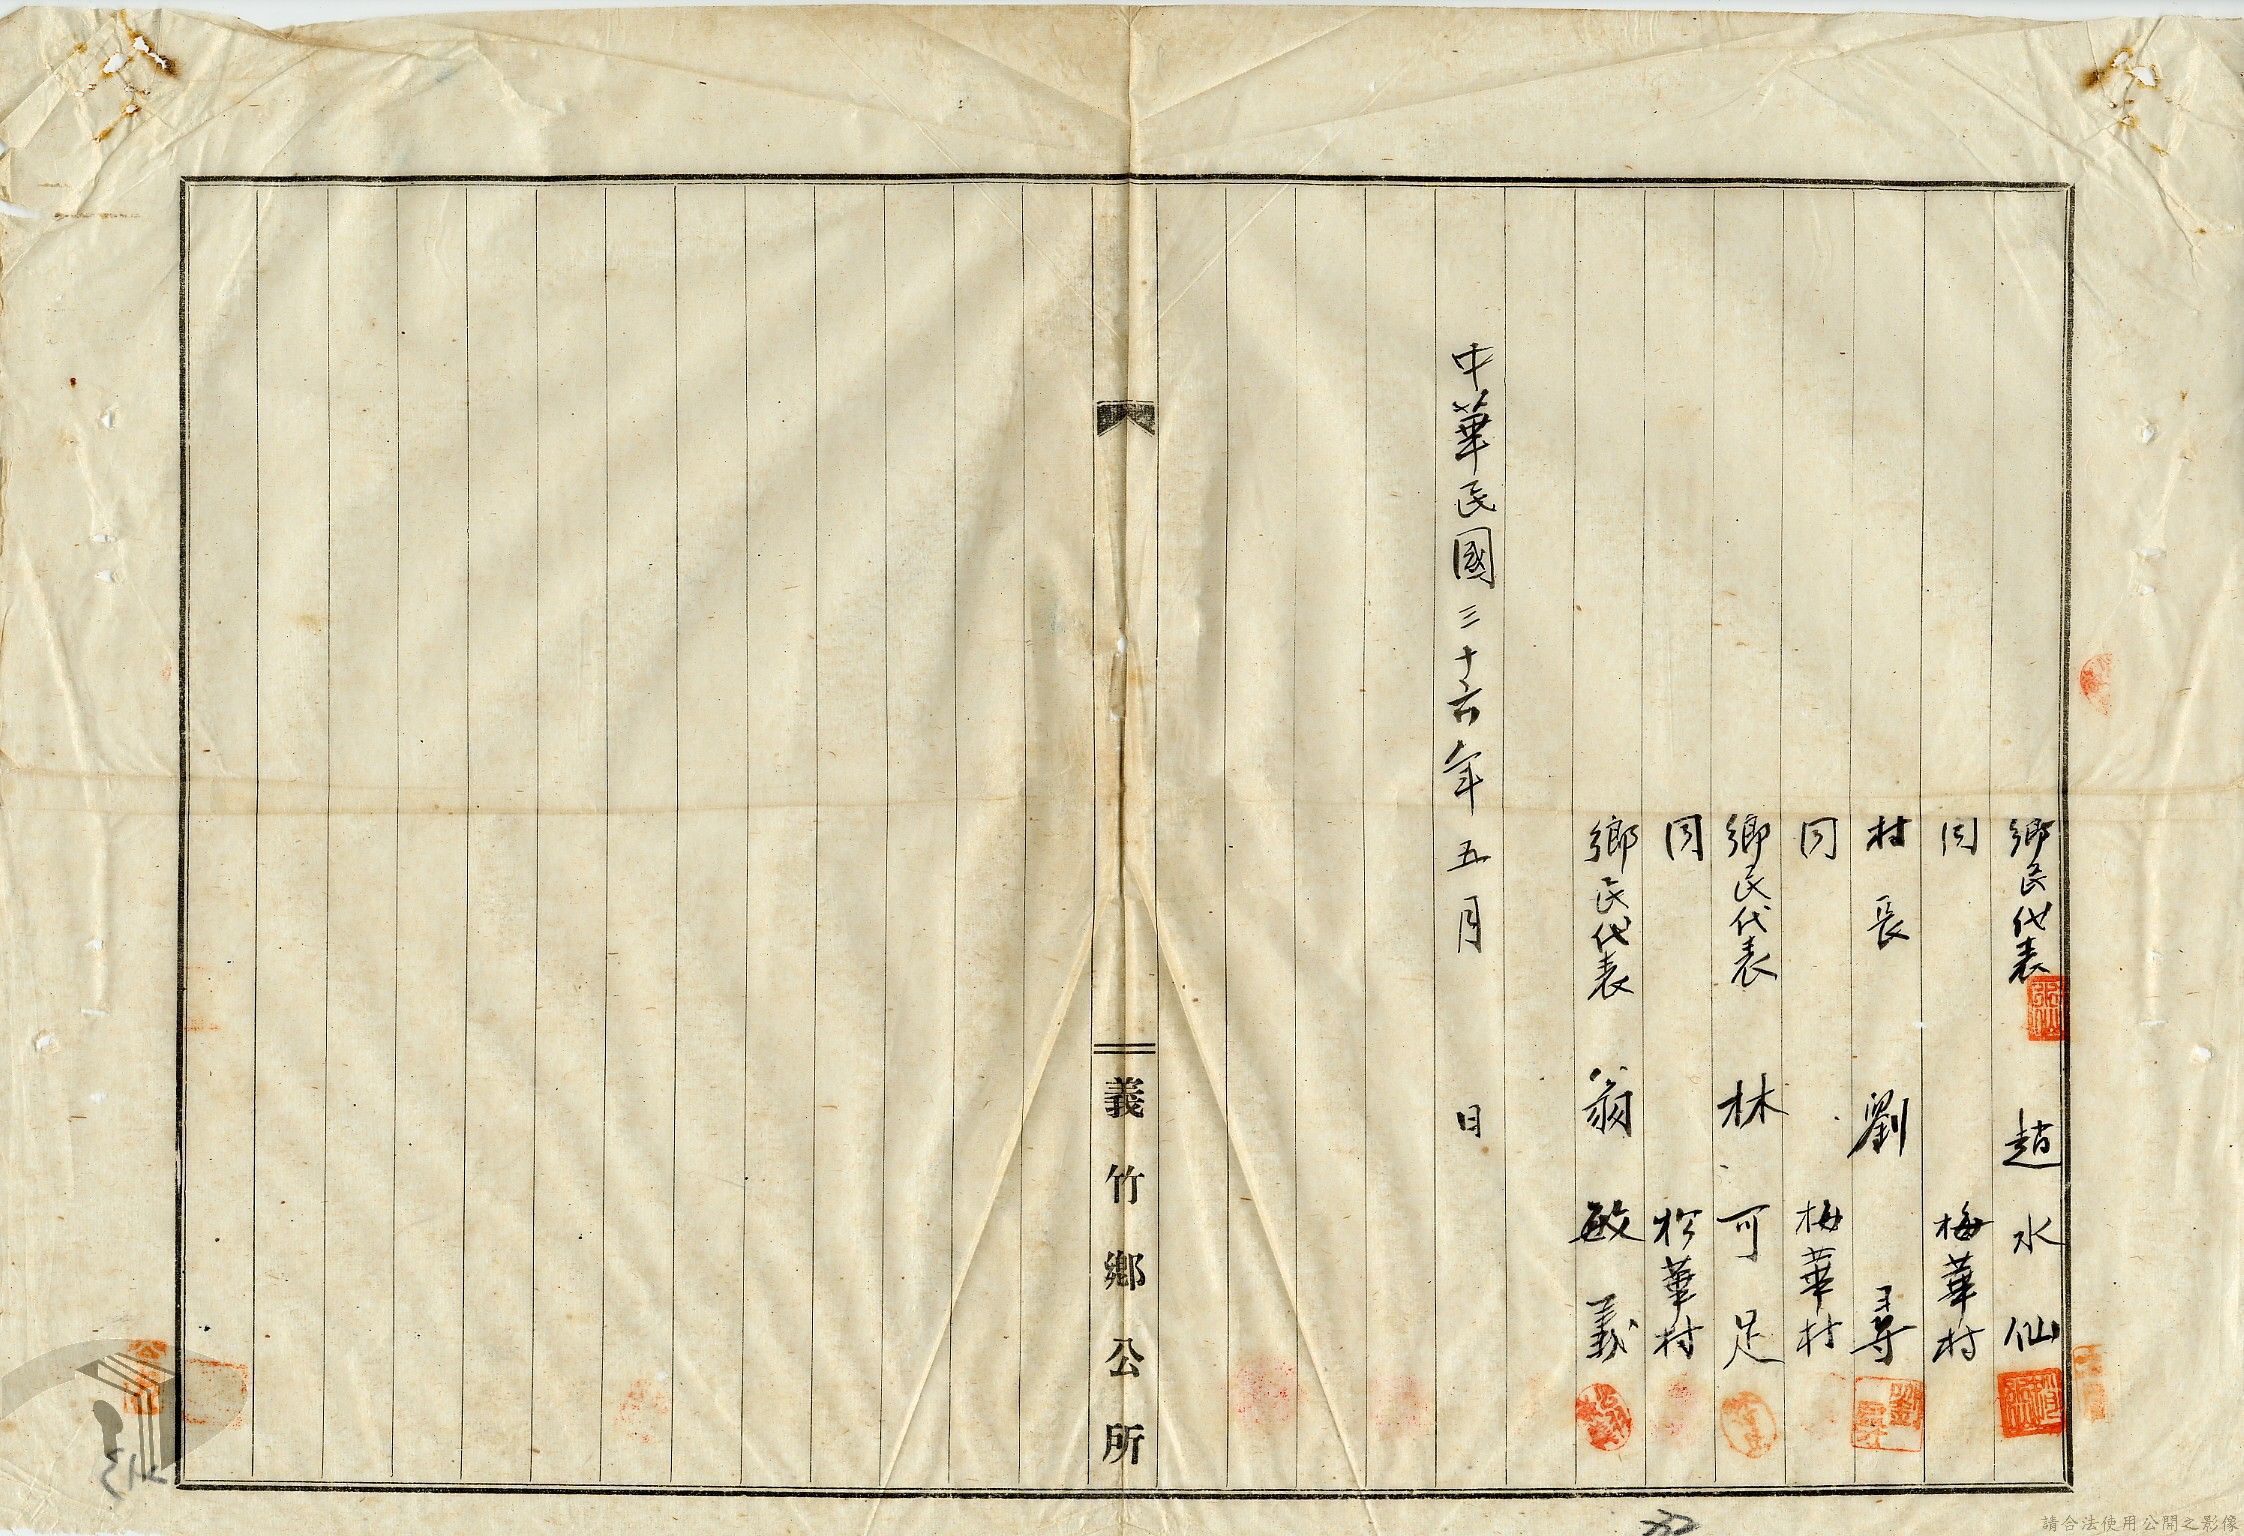 鄉民代表 趙水仙
同 梅華村
村長 劉尋
同 梅華村
鄉民代表 林可足
同 松華村
鄉民代表 翁敏義
中華民國三十六年五月 日
義竹鄉公所
請合法使用公開之影像